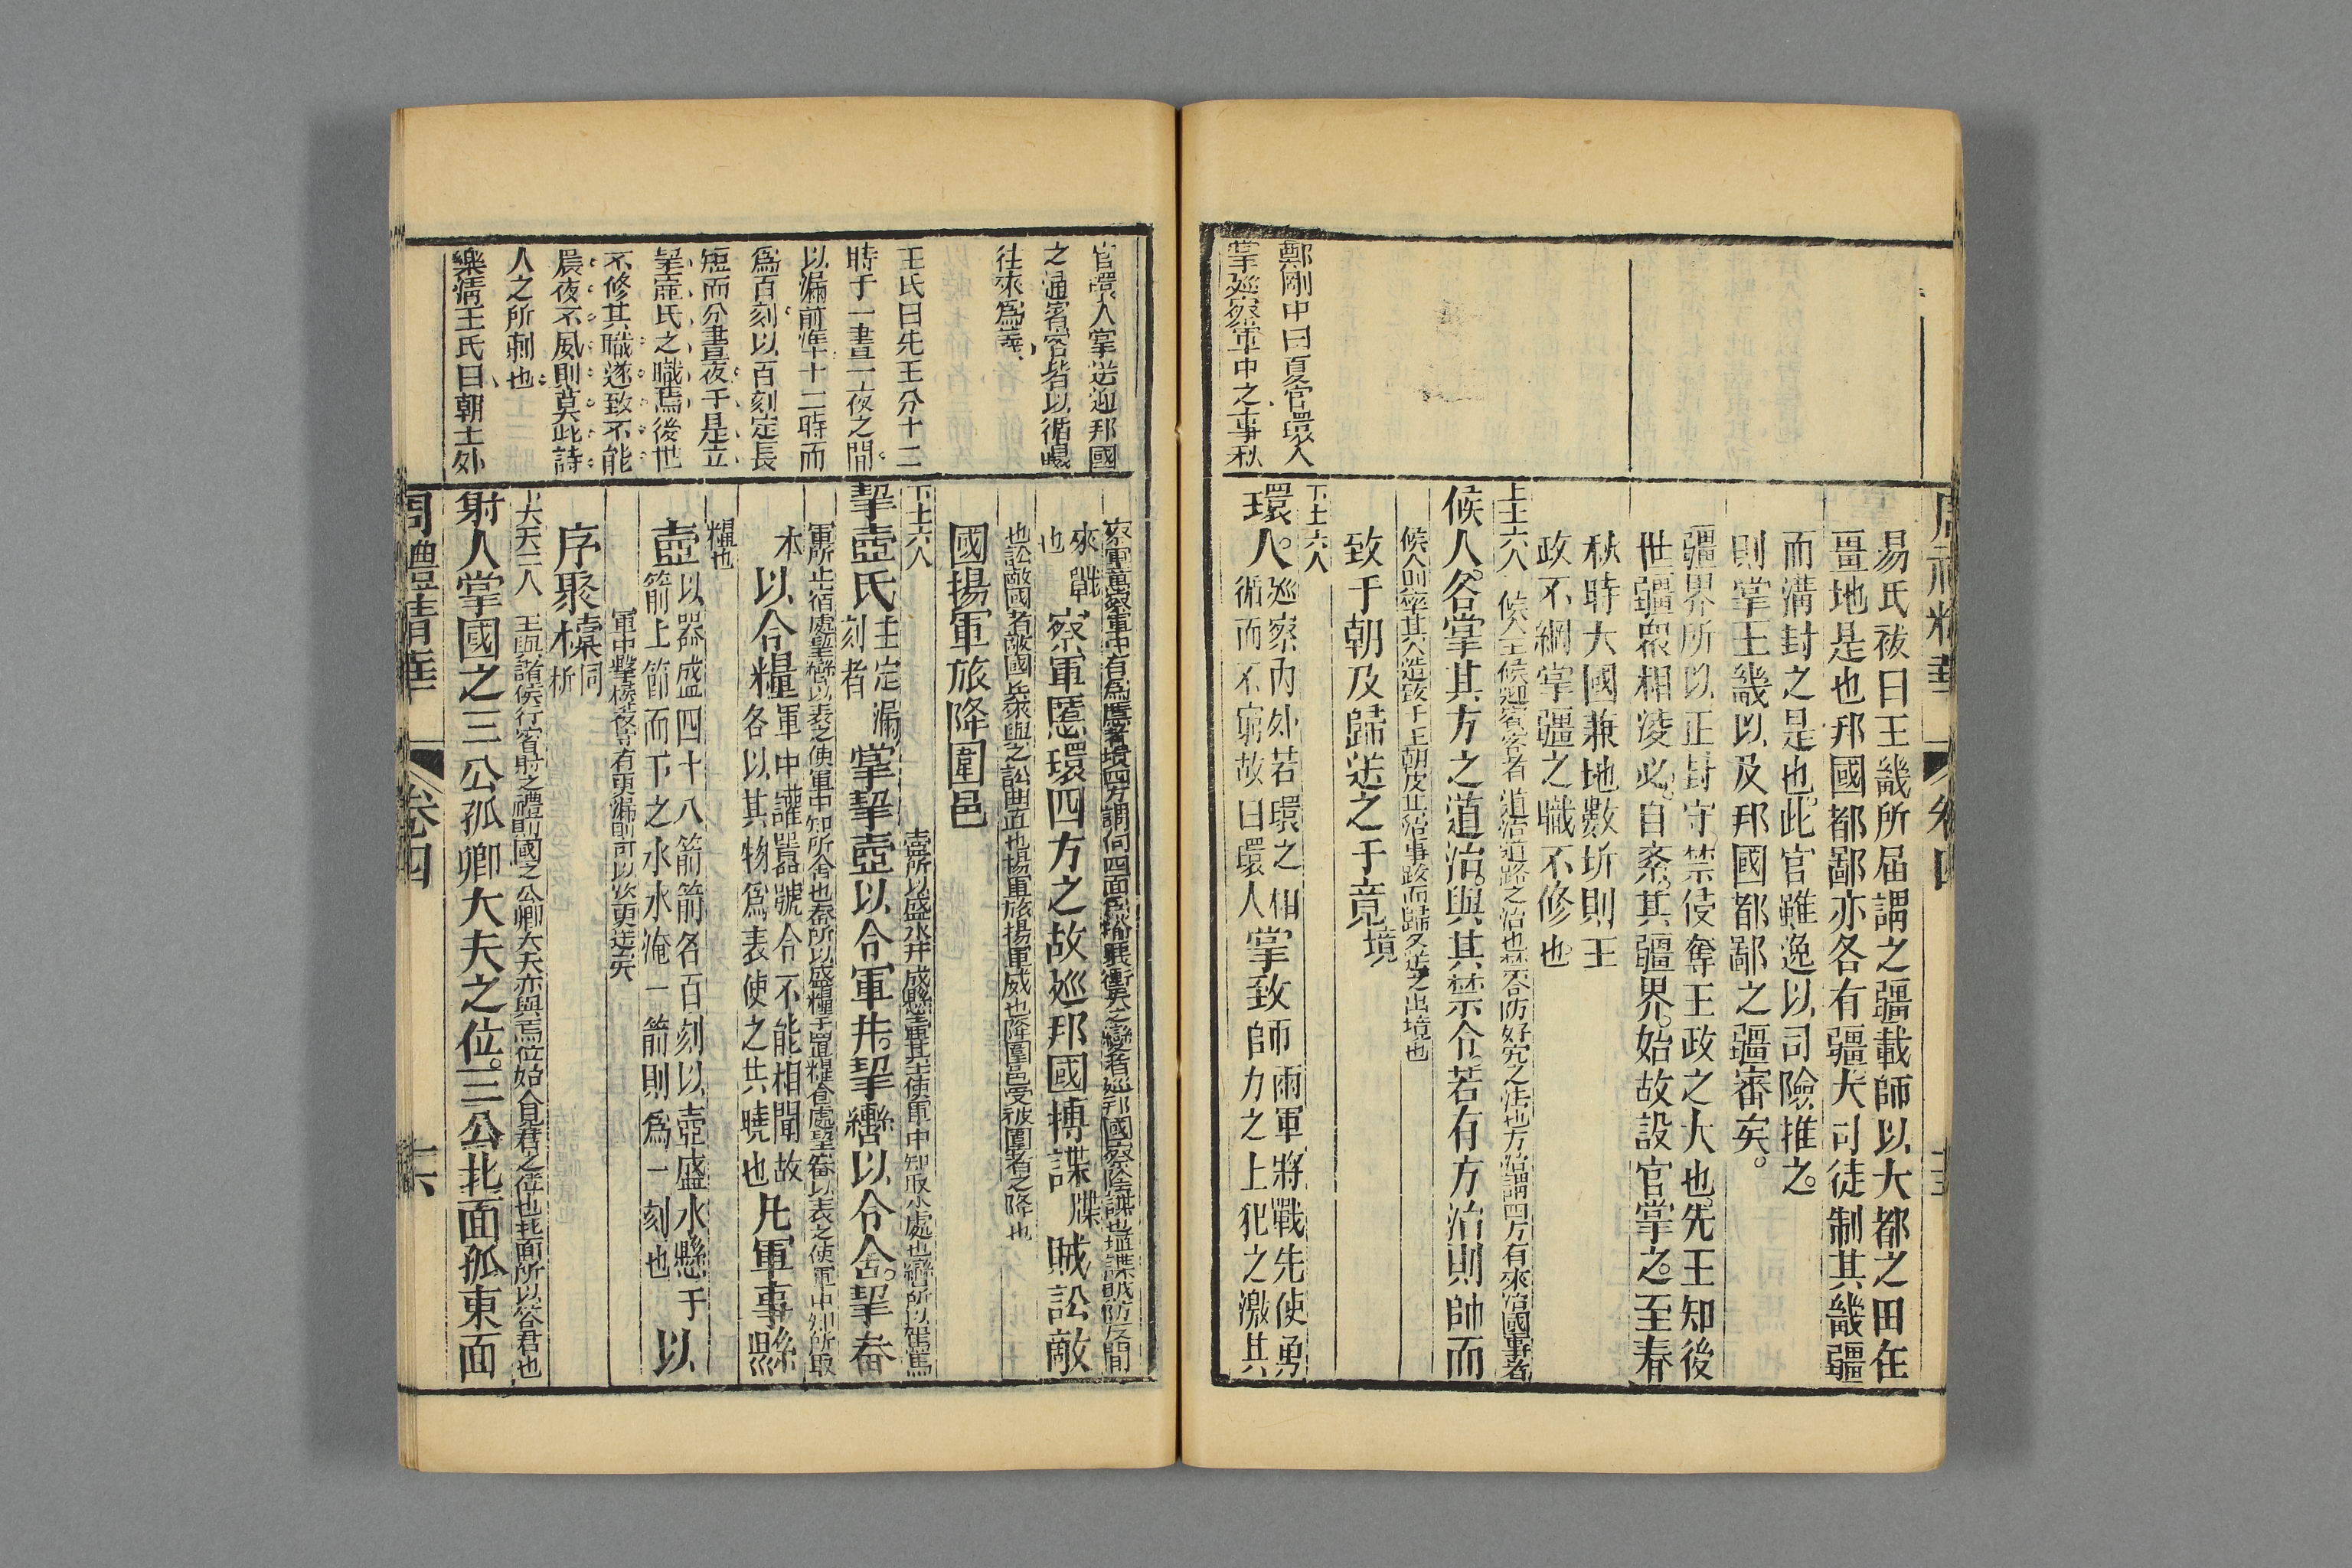 周禮精華 卷四
易氏祓曰王畿所届謂之疆載師以大都之田任
畺地是也邦國都鄙亦各有疆大司徒制其畿疆
而溝封之是也此官雖逸以司險推之
則掌王畿以及邦國都鄙之疆審矣
疆界所以正封守禁侵奪王政之大也先王知後
世疆眾相凌必自紊其疆界始故設官掌之至春
秋時大國兼地數圻則王
政不綱掌疆之職不修也
上士六人 候人主候迎賓客者 道治道路之治也禁令防奸宄之法也方治謂四方有來治國事者
候人各掌其方之道治與其禁令若有方治則帥而
候人則率其人造致于王朝及其治事跋而歸又送之出境也
致于朝及歸送之于竟境
下士六人
環人巡察內外若環之相循而不窮故曰環人掌致師兩軍將戰先使勇力之上犯之激其
鄭剛中曰夏官環人
掌廵察軍中之事秋
官環人掌送廵邦國
之通賓客皆以循環
往來爲義
王氏曰先王分十二
時于一晝一夜之間
以漏前準十二時而
爲百刻以百刻定長
短而分晝夜于是立
挈壺氏之職焉後世
不修其職遂致不能
晨夜不夙則莫此詩
人之所刺也
樂淸王氏曰朝士外
來戰也察軍慝環四方之故廵邦國搏諜牒賊訟敵
也訟敵國者敵國兵來與之訟曲直也揚軍旅揚軍威也降圍邑受被圍者之降也
國揚軍旅降圍邑
下士六人 壺所以盛水井成懸壺軍井上使軍中知取水處也轡所以駕馬
挈壺氏主定漏刻者掌挈壺以令軍井挈轡以令舍挈畚
軍所止宿處挈轡以表之使軍中知所舍也畚所以盛糧于置糧倉處挈畚以表之使軍中知所取
本以令糧軍中讙嚻號令不能相聞故各以其物爲表使之共曉也凡軍事縣
糧也
壺以器盛四十八箭箭各百刻以壺盛水懸于箭上節而下之水水淹一箭則爲一刻也以
軍中擊柝夜守有更漏則可以次更迭矣
序聚㯱同柝
下大夫二人 王與諸侯行賓射之禮則國之公卿大夫亦與焉位始入見君之位也北面所以答君也
射人掌國之三公孤卿大夫之位三公北面孤東面
周禮精華 卷四 十六